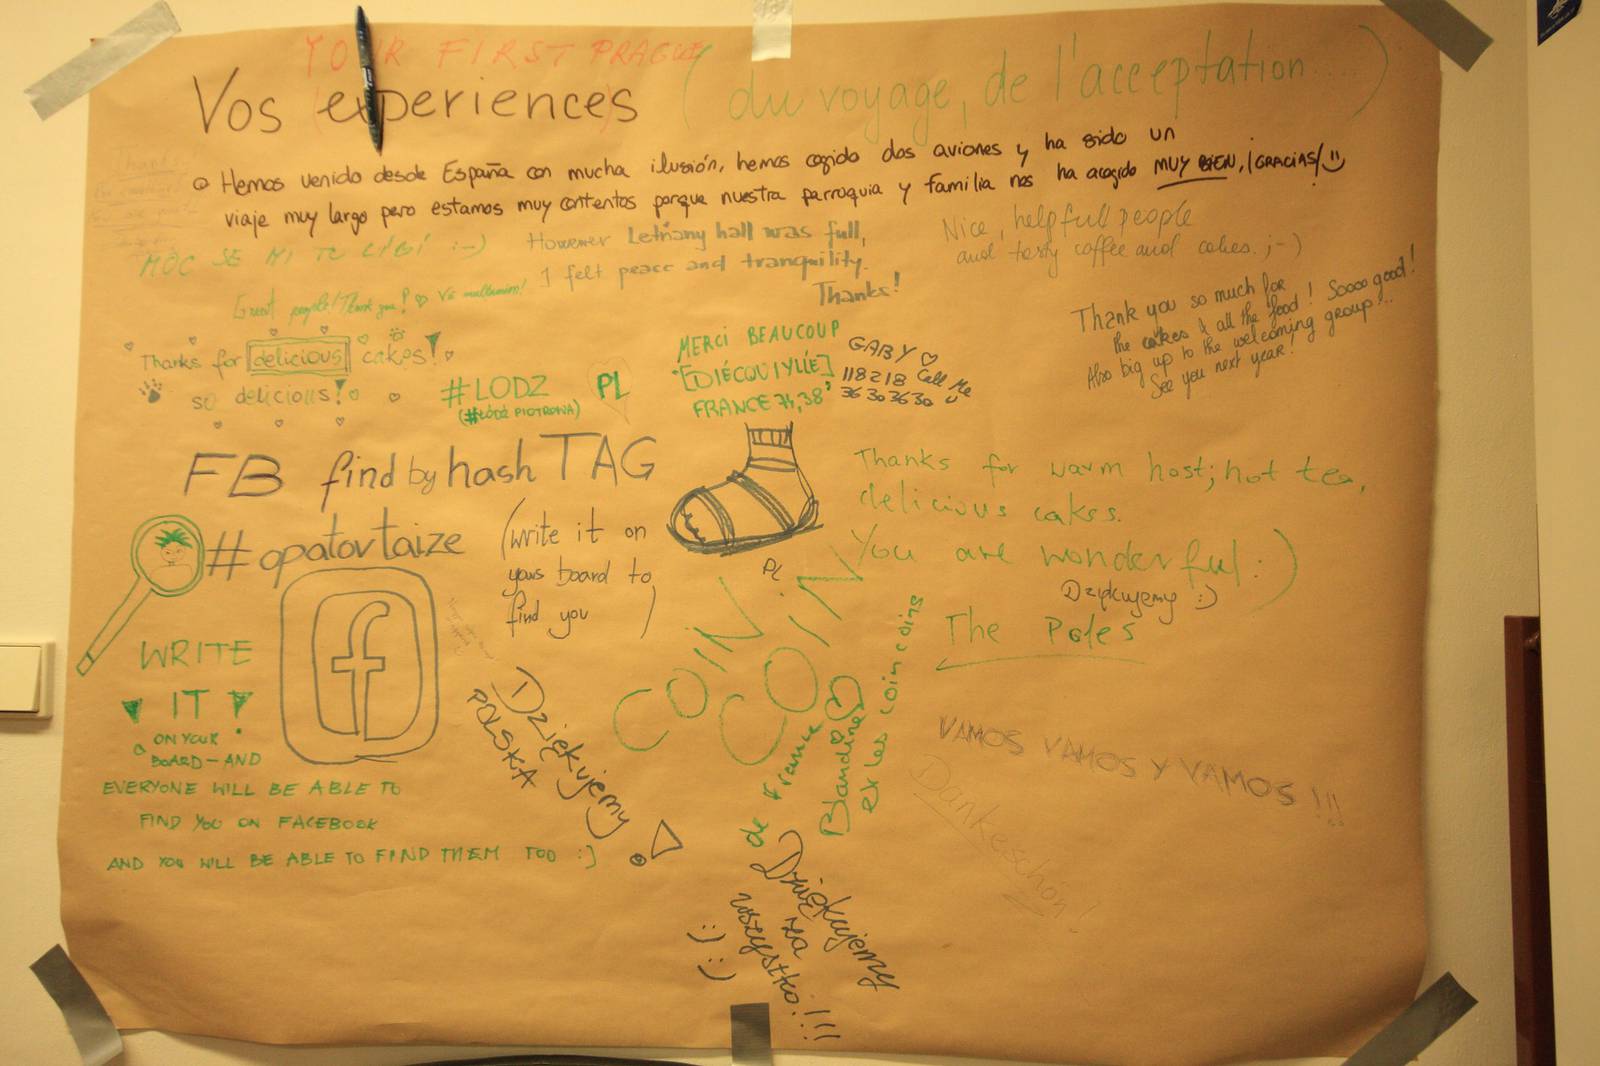 YOUR FIRST PRAGUE
Vos experiences (du voyage, de l'acceptation....)
Hemos venido desde España con mucha ilusión, hemos cogido dos aviones y ha sido un
viaje muy largo pero estamos muy contentos porque nuestra parroquia y familia nos ha acogido MUY BIEN, ¡GRACIAS!
Thanks
MOC SE MI TU LÍBÍ :-)
However Letňany hall was full,
I felt peace and tranquility.
Thanks!
Nice, helpfull people
and tasty coffee and cakes. ;-)
Great people! Thank you!
Thanks for delicious cakes!
so delicious!
#LODZ
(#ŁÓDŹ PIOTROWA)
PL
MERCI BEAUCOUP
[DIÉCOUIYLLIÉ]
FRANCE 74,38
GABY
118218 Call Me
36303630
Thank you so much for
the cakes & all the food! Soooo good!
Also big up to the welcoming group...
See you next year!
FB find by hash TAG
#opatovtaize
(write it on
yours board to
find you)
WRITE
IT
ON YOUR
BOARD - AND
EVERYONE WILL BE ABLE TO
FIND YOU ON FACEBOOK
AND YOU WILL BE ABLE TO FIND THEM TOO :]
f
PL
Thanks for warm host; hot tea,
delicious cakes.
You are wonderful :)
Dziękujemy :)
The Poles
COIN
COIN
de France
Blandine
ex les coin coins
Dziękujemy!
POLSKA
VAMOS VAMOS Y VAMOS!!!
Dankeschön!
Dziękujemy
za
wszystko!!!
:) :)